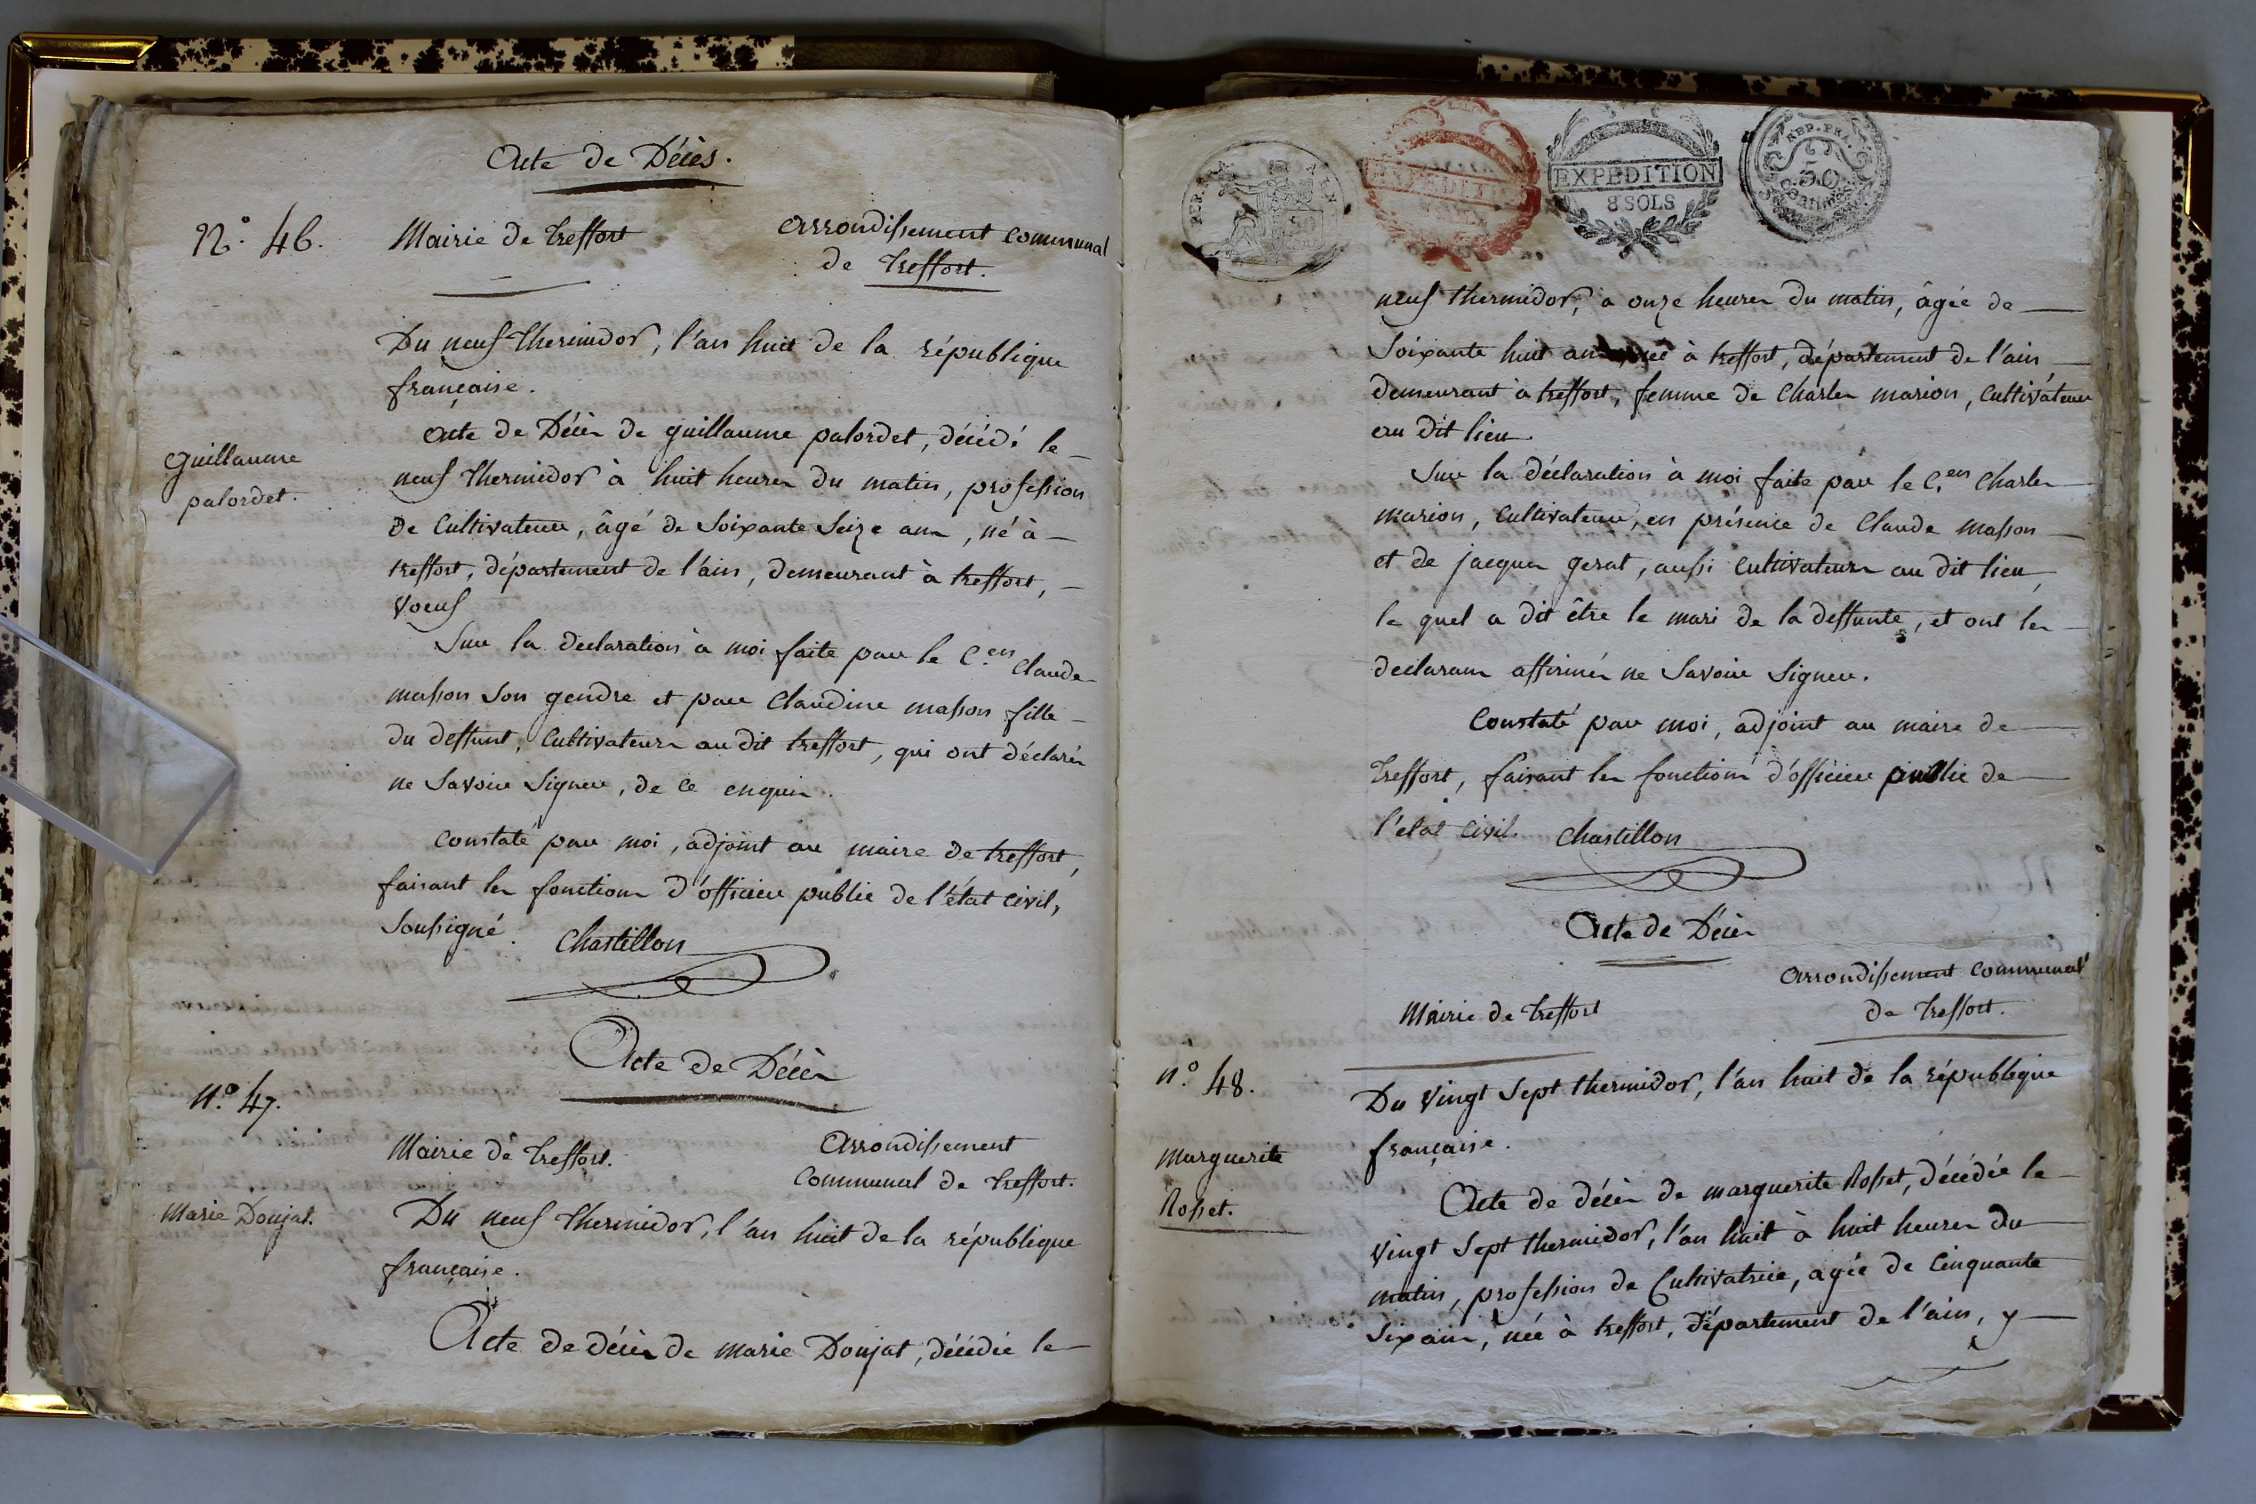 Acte de Décès.
N.° 46.
Mairie de treffort
arrondissement communal
de treffort.
Du neuf thermidor, l'an huit de la république
française.
Guillaume
palordet.
acte de Décès de guillaume palordet, décédé le
neuf thermidor à huit heures du matin, profession
de Cultivateur, âgé de Soixante Seize ans, né à
treffort, département de l'ain, demeurant à treffort,
voeuf
Sur la déclaration à moi faite par le C.en Claude
masson son gendre et par Claudine masson fille
du deffunt, Cultivateurs au dit treffort, qui ont déclarés
ne Savoir Signer, de ce enquis.
Constaté par moi, adjoint au maire de treffort,
faisant les fonctions d'officier public de l'état civil,
Soussigné.
Chastillon
Acte de Décès
N.° 47.
Mairie de treffort.
Arrondissement
Communal de treffort.
Marie Doujat.
Du neuf thermidor, l'an huit de la république
française.
Acte de décès de marie Doujat, décédée le
REP. FRA.
50
EXPEDITION
EXPEDITION
8 SOLS
REP. FRA.
50
Centimes
neuf thermidor, à onze heures du matin, âgée de
Soixante huit ans, née à treffort, département de l'ain
demeurant à treffort, femme de Charles marion, Cultivateur
au dit lieu.
Sur la déclaration à moi faite par le C.en Charles
marion, Cultivateur, en présence de Claude masson
et de jacques gerat, aussi Cultivateurs au dit lieu,
le quel a dit être le mari de la deffunte, et ont les
declarans affirmés ne Savoir Signer.
Constaté par moi, adjoint au maire de
treffort, faisant les fonctions d'officier public de
l'etat civil.
Chastillon
Acte de Décès
Mairie de treffort
arrondissement Communal
de treffort.
N.° 48.
Du vingt Sept thermidor, l'an huit de la république
française.
Marguerite
Rosset.
Acte de décès de marguerite Rosset, décédée le
vingt Sept thermidor, l'an huit à huit heures du
matin, profession de Cultivatrice, agée de Cinquante
Six ans, née à treffort, Département de l'ain, y